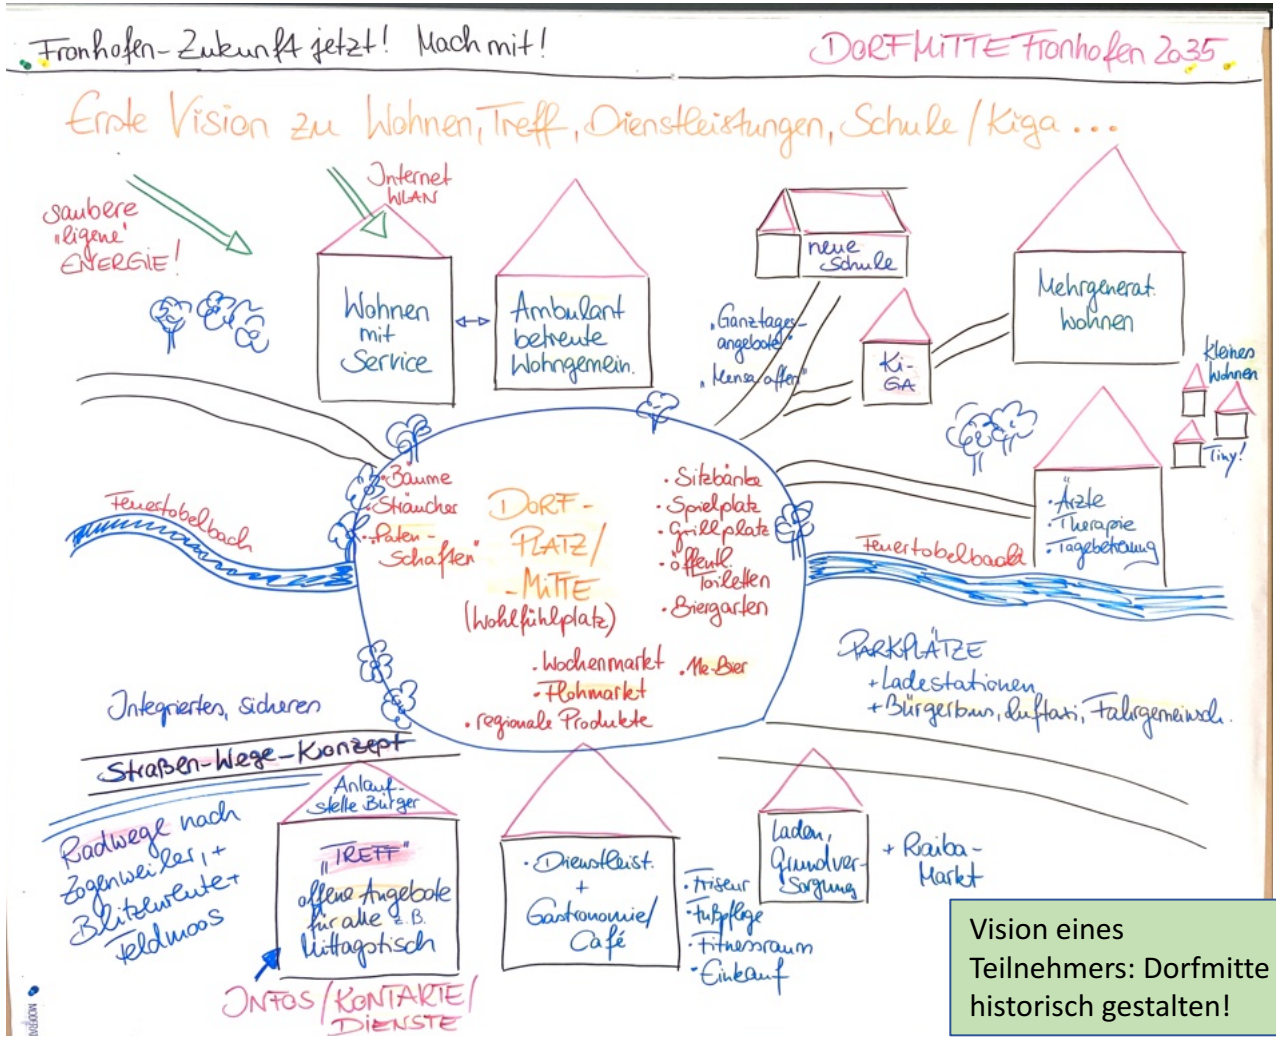 Fronhofen-Zukunft jetzt! Mach mit!
DORFMITTE Fronhofen 2035
Erste Vision zu Wohnen, Treff, Dienstleistungen, Schule/Kiga...
saubere
"eigene"
ENERGIE!
Internet
WLAN
Wohnen
mit
Service
Ambulant
betreute
Wohngemein.
neue
Schule
"Ganztages-
angebote"
"Mensa offen"
Ki-
GA
Mehrgenerat.
wohnen
kleines
Wohnen
Tiny!
· Ärzte
· Therapie
· Tagebetreuung
Feuertobelbach
Feuertobelbach
· Bäume
· Sträucher
· "Paten-
schaften"
DORF-
PLATZ/
-MITTE
(Wohlfühlplatz)
· Sitzbänke
· Spielplatz
· Grillplatz
· öffentl.
Toiletten
· Biergarten
· Wochenmarkt
· Flohmarkt
· regionale Produkte
PARKPLÄTZE
+ Ladestationen
+ Bürgerbus, Lufttaxi, Fahrgemeinsch.
Integriertes, sicheres
Straßen-Wege-Konzept
Radwege nach
Zogenweiler, +
Blitzenreute +
Feldmoos
Anlauf-
stelle Bürger
"TREFF"
offene Angebote
für alle z.B.
Mittagstisch
INFOS/KONTAKTE/
DIENSTE
· Dienstleist.
+
Gastronomie/
Café
· Friseur
· Fußpflege
· Fitnessraum
· Einkauf
Laden,
Grundver-
sorgung
+ Raiba-
Markt
Vision eines
Teilnehmers: Dorfmitte
historisch gestalten!